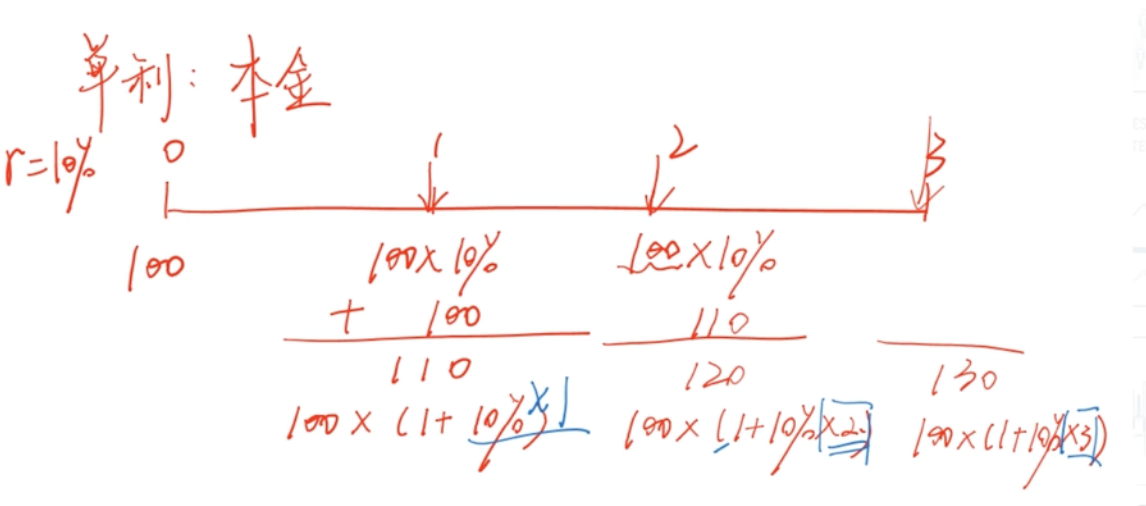 单利：本金
r=10% 0 1 2 3
100 100×10% 100×10%
+ 100 110
110 120 130
100×(1+10%×1) 100×(1+10%×2) 100×(1+10%×3)